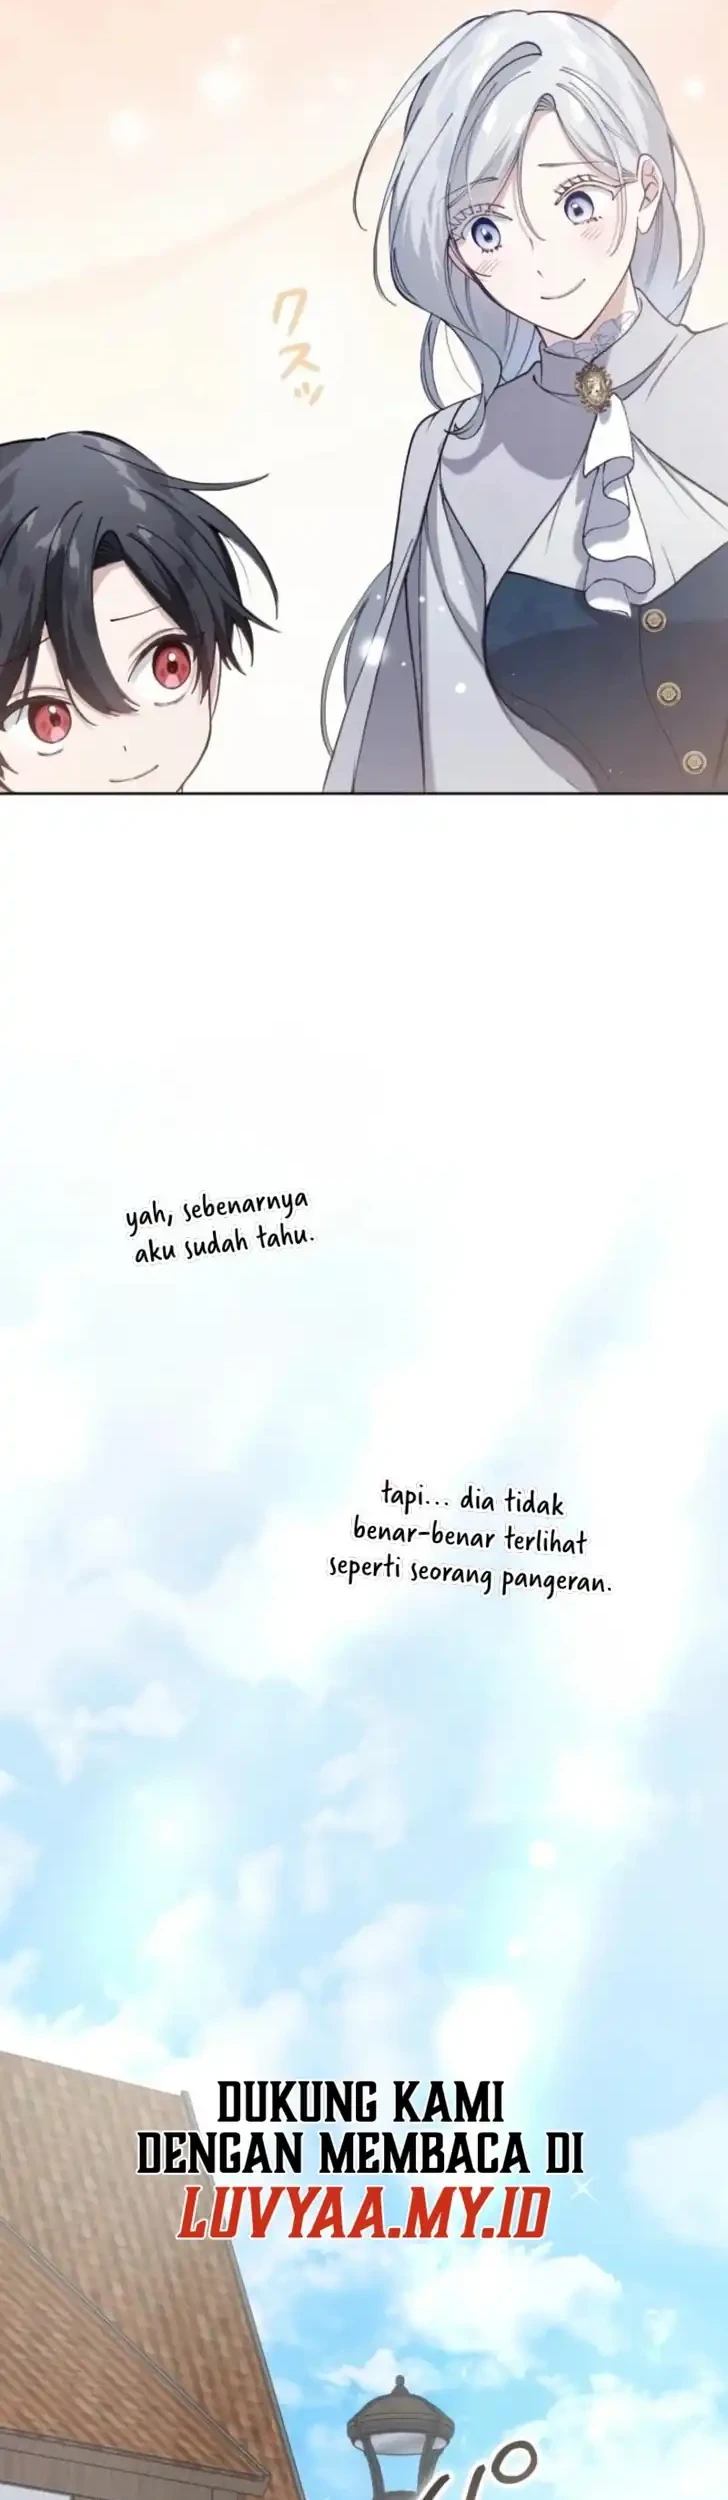 クスッ
yah, sebenarnya
aku sudah tahu.
tapi... dia tidak
benar-benar terlihat
seperti seorang pangeran.
DUKUNG KAMI
DENGAN MEMBACA DI
LUVYAA.MY.ID